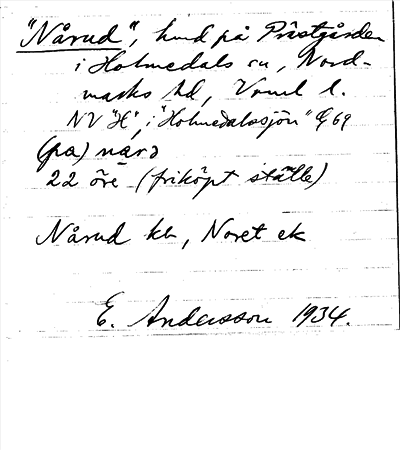 "Nårud", hmd på Prästgården
i Holmedals sn, Nord-
marks hd, Vrml l.
NV "H", i "Holmedalssjön" G 69
(pa) nar
22 öre (friköpt ställe)
Nårud kb, Noret ek
E. Andersson 1934.